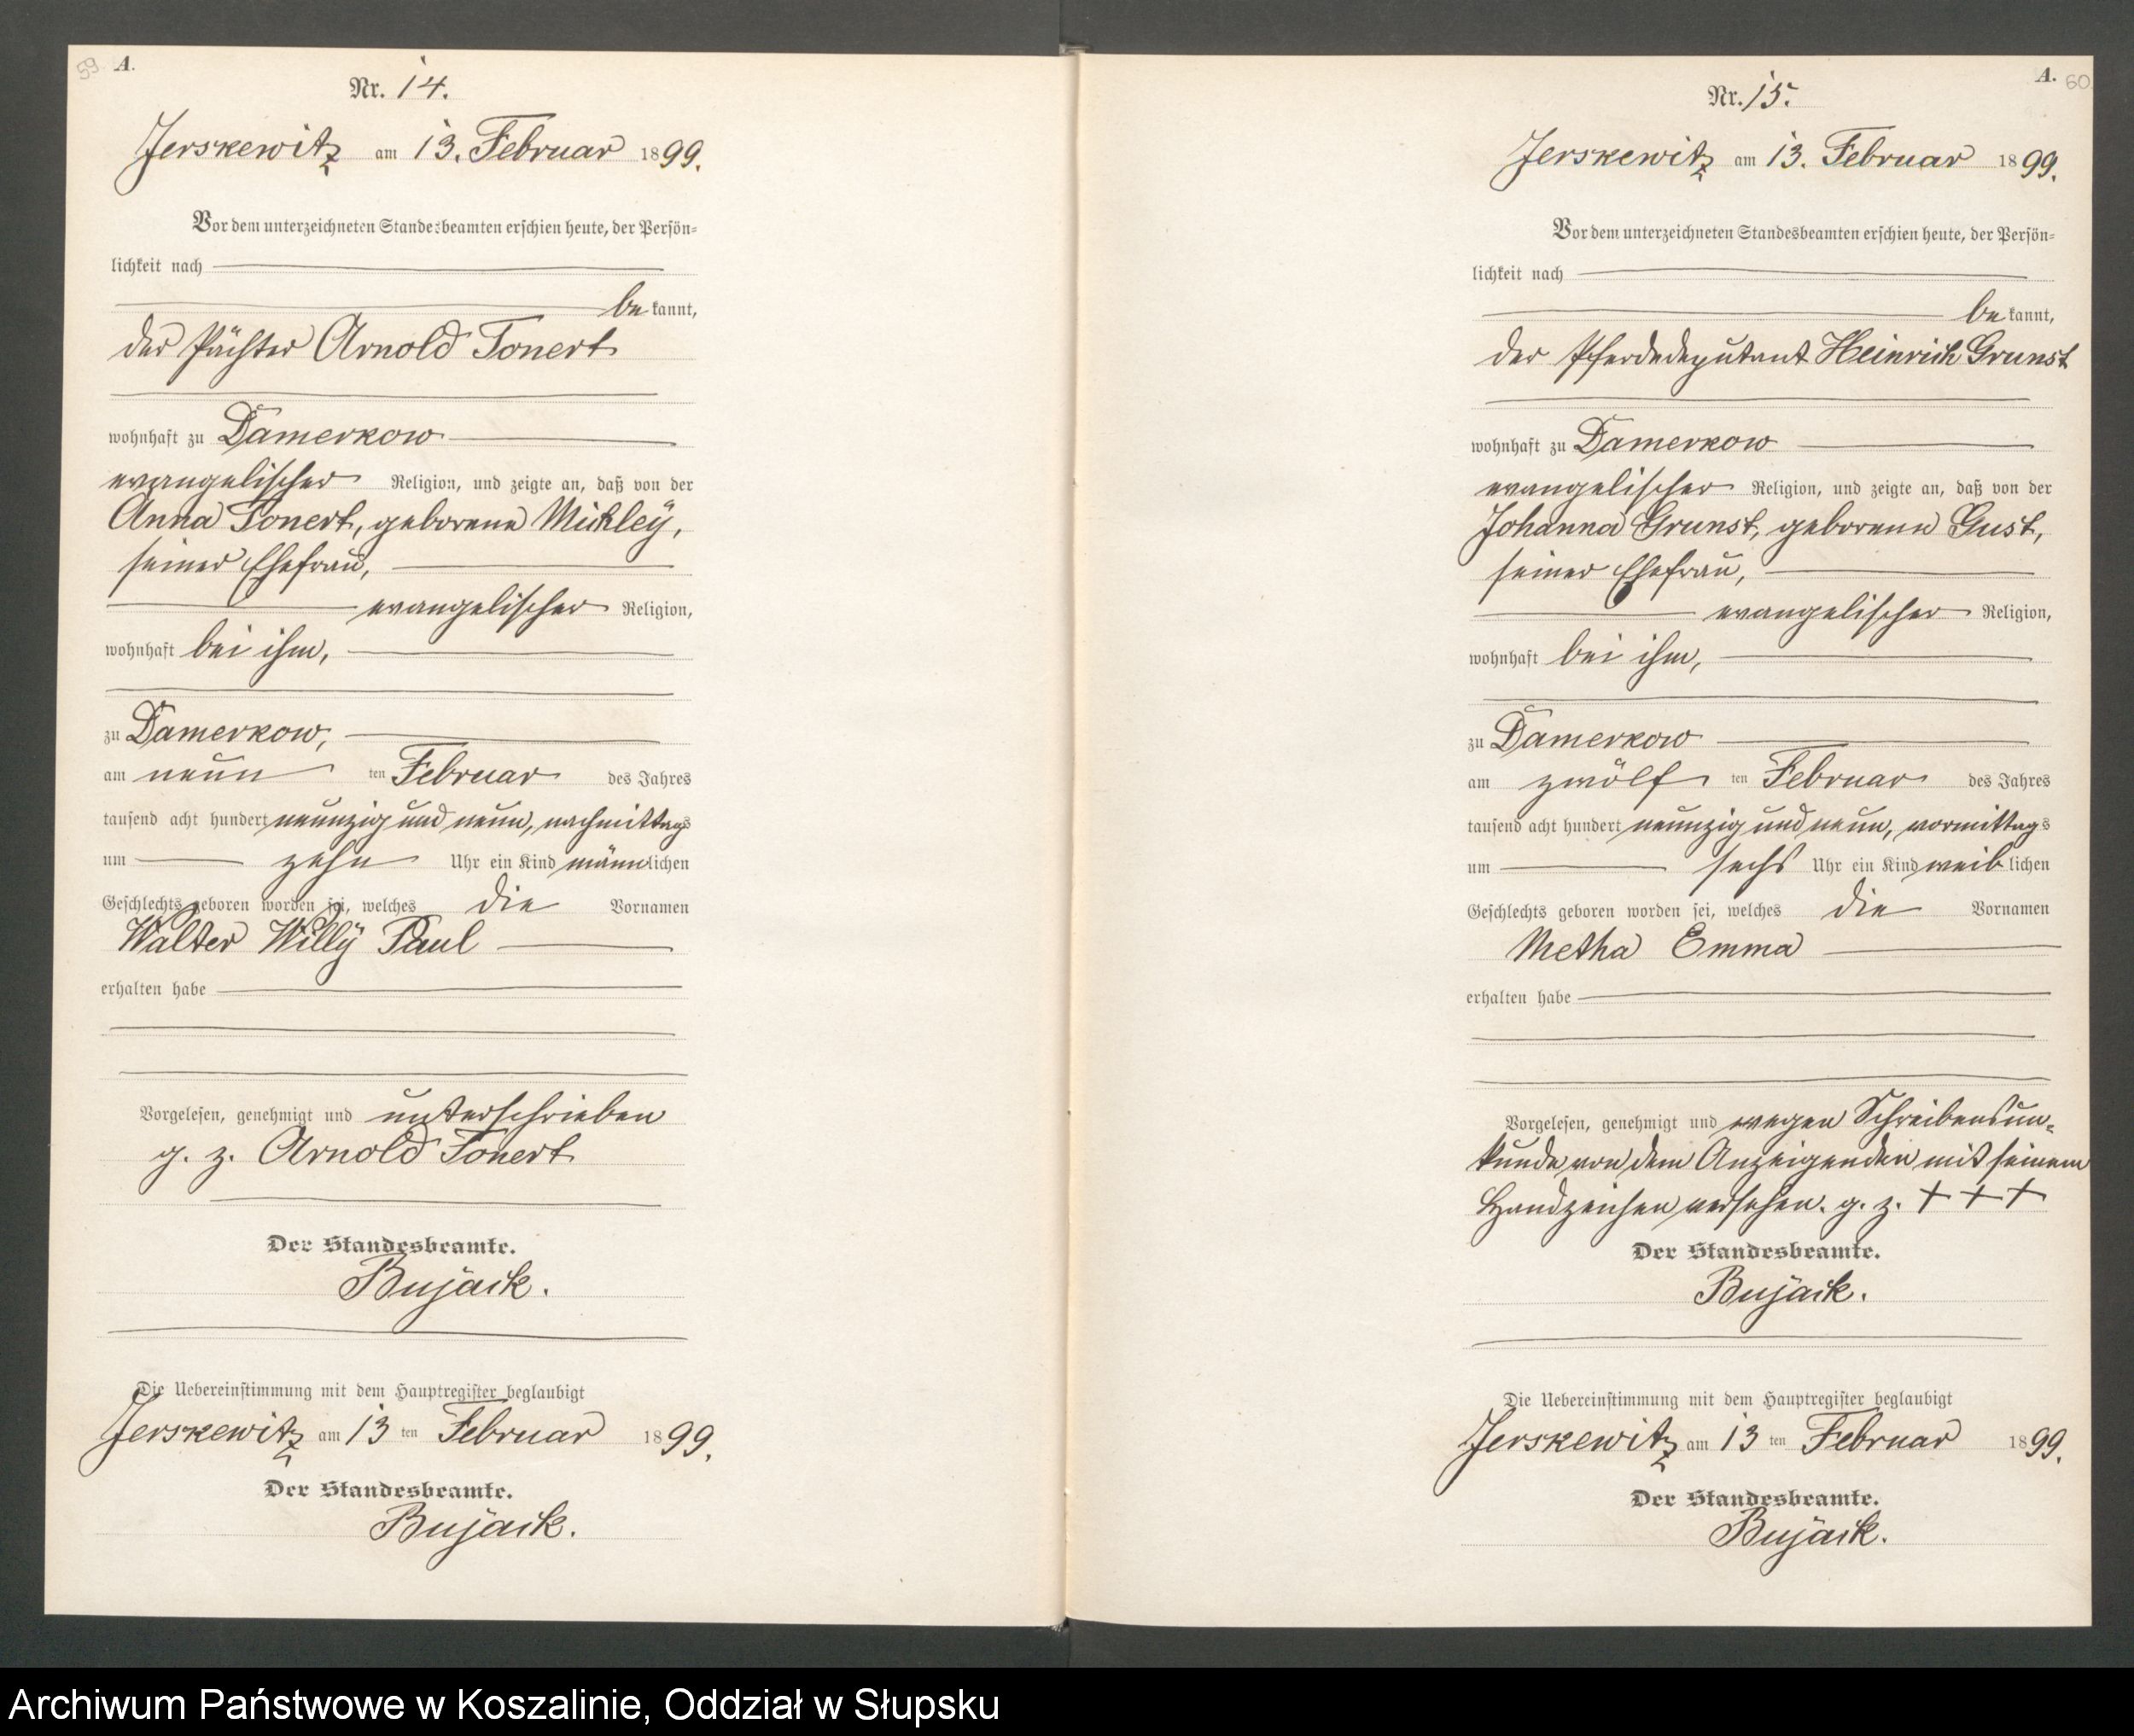 59 A.
Nr. 14.
Jerskewitz am 13. Februar 1899.
Vor dem unterzeichneten Standesbeamten erschien heute, der Persön-
lichkeit nach
bekannt,
der Pächter Arnold Tonert
wohnhaft zu Damerkow
evangelischer Religion, und zeigte an, daß von der
Anna Tonert, geborene Mickley,
seiner Ehefrau,
evangelischer Religion,
wohnhaft bei ihm,
zu Damerkow,
am neun ten Februar des Jahres
tausend acht hundert neunzig und neun, nachmittags
um zehn Uhr ein Kind männlichen
Geschlechts geboren worden sei, welches die Vornamen
Walter Willy Paul
erhalten habe
Vorgelesen, genehmigt und unterschrieben
g. z. Arnold Tonert
Der Standesbeamte.
Bujack.
Die Uebereinstimmung mit dem Hauptregister beglaubigt
Jerskewitz am 13 ten Februar 1899.
Der Standesbeamte.
Bujack.
A. 60
Nr. 15.
Jerskewitz am 13. Februar 1899.
Vor dem unterzeichneten Standesbeamten erschien heute, der Persön-
lichkeit nach
bekannt,
der Pferdedeputant Heinrich Grunst
wohnhaft zu Damerkow
evangelischer Religion, und zeigte an, daß von der
Johanna Grunst, geborene Gust,
seiner Ehefrau,
evangelischer Religion,
wohnhaft bei ihm,
zu Damerkow
am zwölf ten Februar des Jahres
tausend acht hundert neunzig und neun, vormittags
um sechs Uhr ein Kind weiblichen
Geschlechts geboren worden sei, welches die Vornamen
Metha Emma
erhalten habe
Vorgelesen, genehmigt und wegen Schreibensun-
kunde von dem Anzeigenden mit seinem
Handzeichen versehen. g. z. + + +
Der Standesbeamte.
Bujack.
Die Uebereinstimmung mit dem Hauptregister beglaubigt
Jerskewitz am 13 ten Februar 1899.
Der Standesbeamte.
Bujack.
Archiwum Państwowe w Koszalinie, Oddział w Słupsku